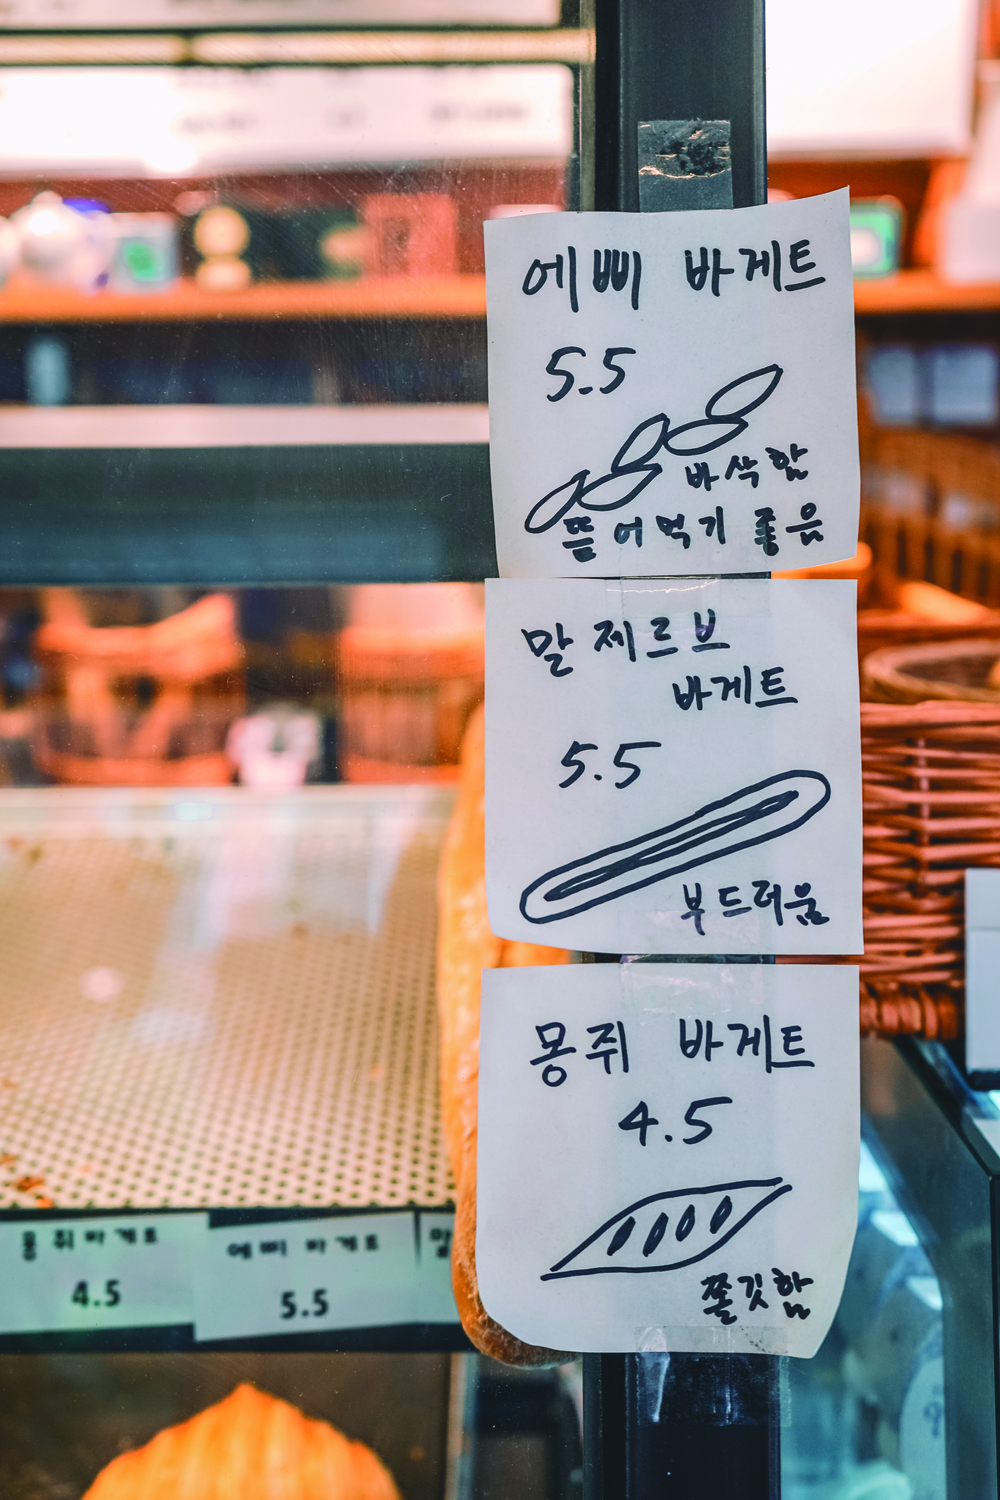 에삐 바게트
5.5
바삭함
뜯어먹기 좋음
말제르브
바게트
5.5
부드러움
몽쥐 바게트
4.5
쫄깃함
몽쥐바게트
4.5
에삐 바게트
5.5
말